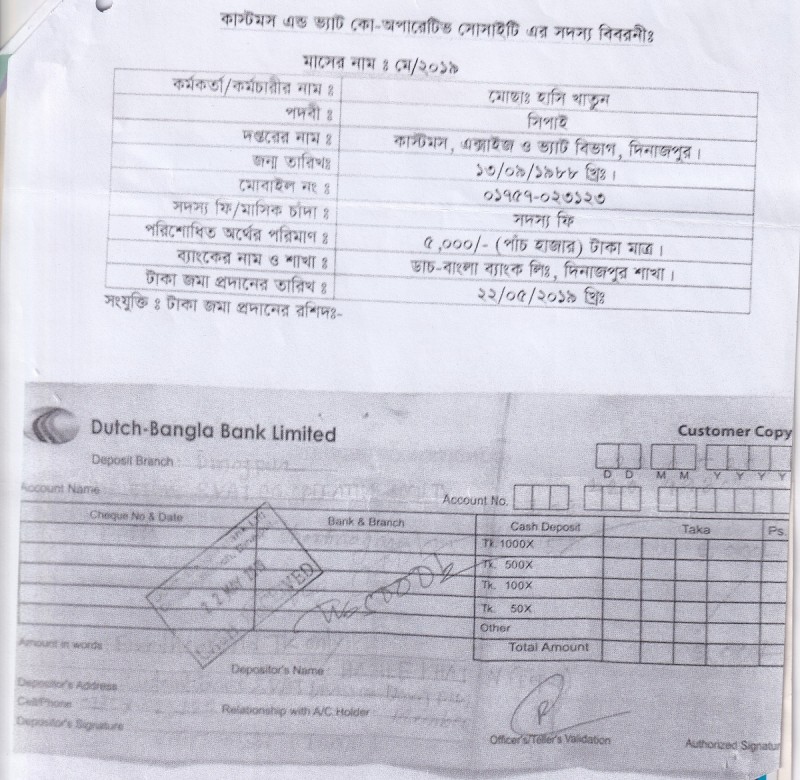 কাস্টমস এন্ড ভ্যাট কো-অপারেটিভ সোসাইটি এর সদস্য বিবরনীঃ
মাসের নাম ঃ মে/২০১৯
কর্মকর্তা/কর্মচারীর নাম ঃ মোছাঃ হাসি খাতুন
পদবী ঃ সিপাই
দপ্তরের নাম ঃ কাস্টমস, এক্সাইজ ও ভ্যাট বিভাগ, দিনাজপুর।
জন্ম তারিখঃ ১৩/০৯/১৯৮৮ খ্রিঃ।
মোবাইল নং ঃ ০১৭৫৭-০২৩১২৩
সদস্য ফি/মাসিক চাঁদা ঃ সদস্য ফি
পরিশোধিত অর্থের পরিমাণ ঃ ৫,০০০/- (পাঁচ হাজার) টাকা মাত্র।
ব্যাংকের নাম ও শাখা ঃ ডাচ-বাংলা ব্যাংক লিঃ, দিনাজপুর শাখা।
টাকা জমা প্রদানের তারিখ ঃ ২২/০৫/২০১৯ খ্রিঃ
সংযুক্তি ঃ টাকা জমা প্রদানের রশিদঃ-
Dutch-Bangla Bank Limited
Customer Copy
Deposit Branch :
D D M M Y Y Y Y
Account Name
Account No.
Cheque No & Date Bank & Branch Cash Deposit Taka Ps.
Tk. 1000X
Tk. 500X
Tk. 100X
Tk. 50X
Other
Total Amount
22 MAY 2019
Amount in words
Depositor's Name :
Depositor's Address
Cell/Phone
Relationship with A/C Holder
Depositor's Signature
Officer's/Teller's Validation
Authorized Signatur